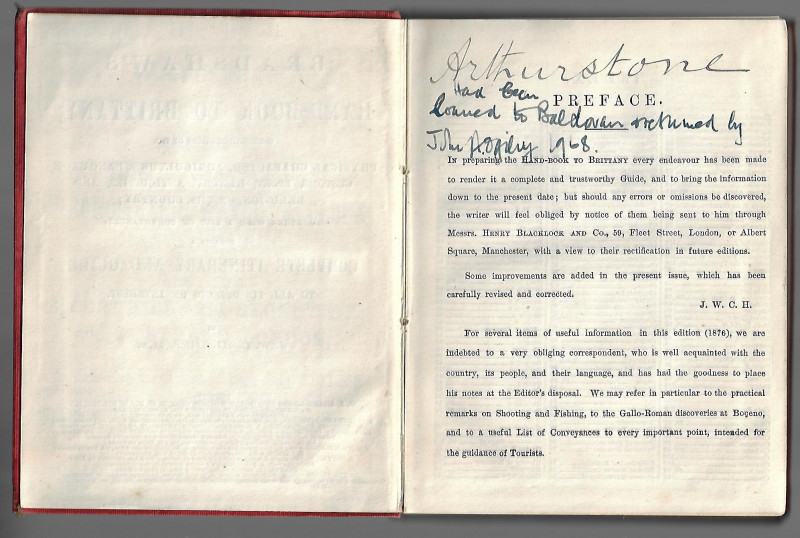 Arthurstone
Had been
loaned to Baldovan & returned by
John Ogilvy 1968.
PREFACE.
In preparing the Hand-book to Brittany every endeavour has been made
to render it a complete and trustworthy Guide, and to bring the information
down to the present date; but should any errors or omissions be discovered,
the writer will feel obliged by notice of them being sent to him through
Messrs. Henry Blacklock and Co., 59, Fleet Street, London, or Albert
Square, Manchester, with a view to their rectification in future editions.
Some improvements are added in the present issue, which has been
carefully revised and corrected.
J. W. C. H.
For several items of useful information in this edition (1876), we are
indebted to a very obliging correspondent, who is well acquainted with the
country, its people, and their language, and has had the goodness to place
his notes at the Editor's disposal. We may refer in particular to the practical
remarks on Shooting and Fishing, to the Gallo-Roman discoveries at Bogeno,
and to a useful List of Conveyances to every important point, intended for
the guidance of Tourists.